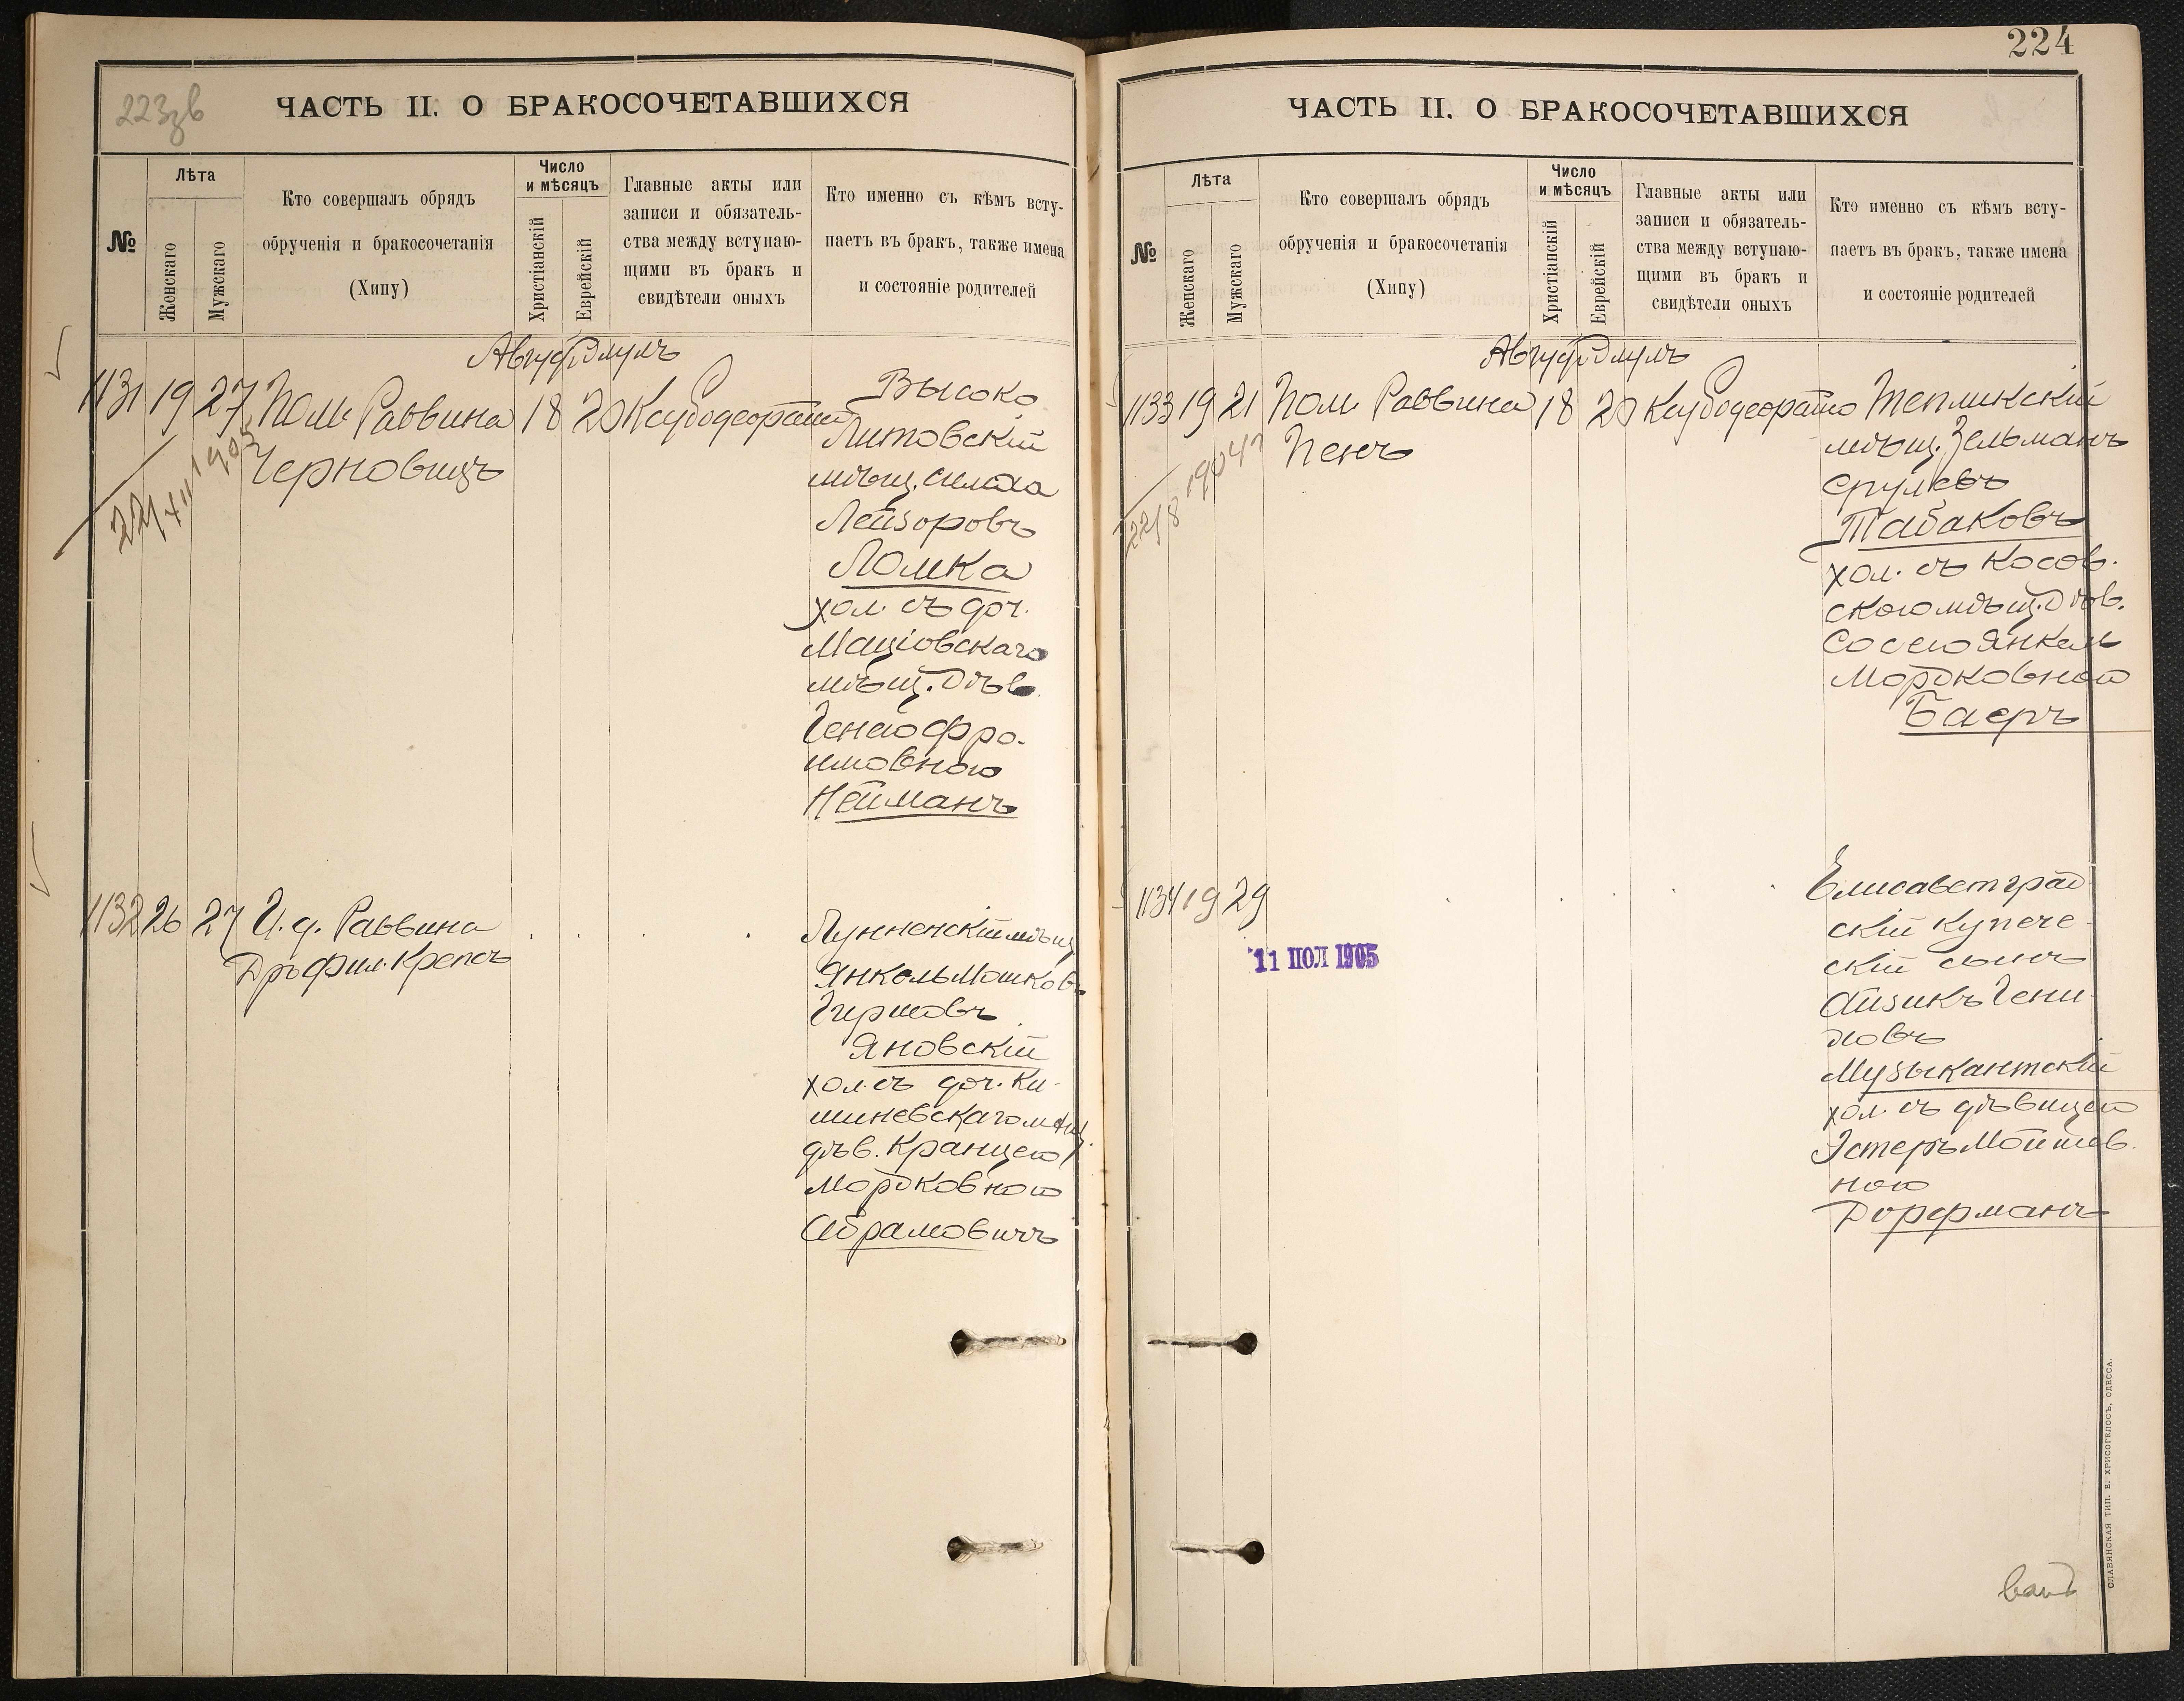 223зв
ЧАСТЬ II. О БРАКОСОЧЕТАВШИХСЯ
№
Лѣта
Женскаго
Мужскаго
Кто совершалъ обрядъ
обрученія и бракосочетанія
(Хипу)
Число
и мѣсяцъ
Христіанскій
Еврейскій
Главные акты или
записи и обязатель-
ства между вступаю-
щими въ бракъ и
свидѣтели оныхъ
Кто именно съ кѣмъ всту-
паетъ въ бракъ, также имена
и состояніе родителей
1131 19 27 Пом. Раввина 18 20
Черновицъ
22/XII 1905
Высоко
Литовскій
мѣщ. Симха
Лейзоровъ
Ломка
хол. съ доч.
Маціовскаго
мѣщ. дѣв.
Генею Фро-
имовною
Нейманъ
1132 26 27 И. д. Раввина
Дръ Фил. Крепсъ
Лунненскій мѣщ
Янкель Мошков
Гиршовъ
Яновскій
хол. съ доч. Ки-
шиневскаго мѣщ.
дѣв. Кранцею
Мордковною
Абрамовичъ
224
ЧАСТЬ II. О БРАКОСОЧЕТАВШИХСЯ
№
Лѣта
Женскаго
Мужскаго
Кто совершалъ обрядъ
обрученія и бракосочетанія
(Хипу)
Число
и мѣсяцъ
Христіанскій
Еврейскій
Главные акты или
записи и обязатель-
ства между вступаю-
щими въ бракъ и
свидѣтели оныхъ
Кто именно съ кѣмъ всту-
паетъ въ бракъ, также имена
и состояніе родителей
1133 19 21 Пом. Раввина 18 20
Пенъ
22/8 1904
Тепликскій
мѣщ. Зельманъ
Срулевъ
Табаковъ
хол. съ Косов.
скою мѣщ. дѣв.
Сосею Янкель
Мордковною
Баеръ
1134 19 29
11 ПОЛ 1905
Елисаветград
скій купече-
скій сынъ
Айзикъ Гени
ловъ
Музыкантскій
хол. съ дѣвицею
Эстеръ Мойшев.
ною
Дорфманъ
СЛАВЯНСКАЯ ТИП. Е. ХРИСОГЕЛОСЪ, ОДЕССА.